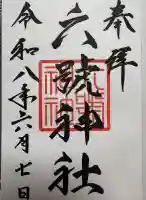 奉拝
六號神社
令和八年六月七日